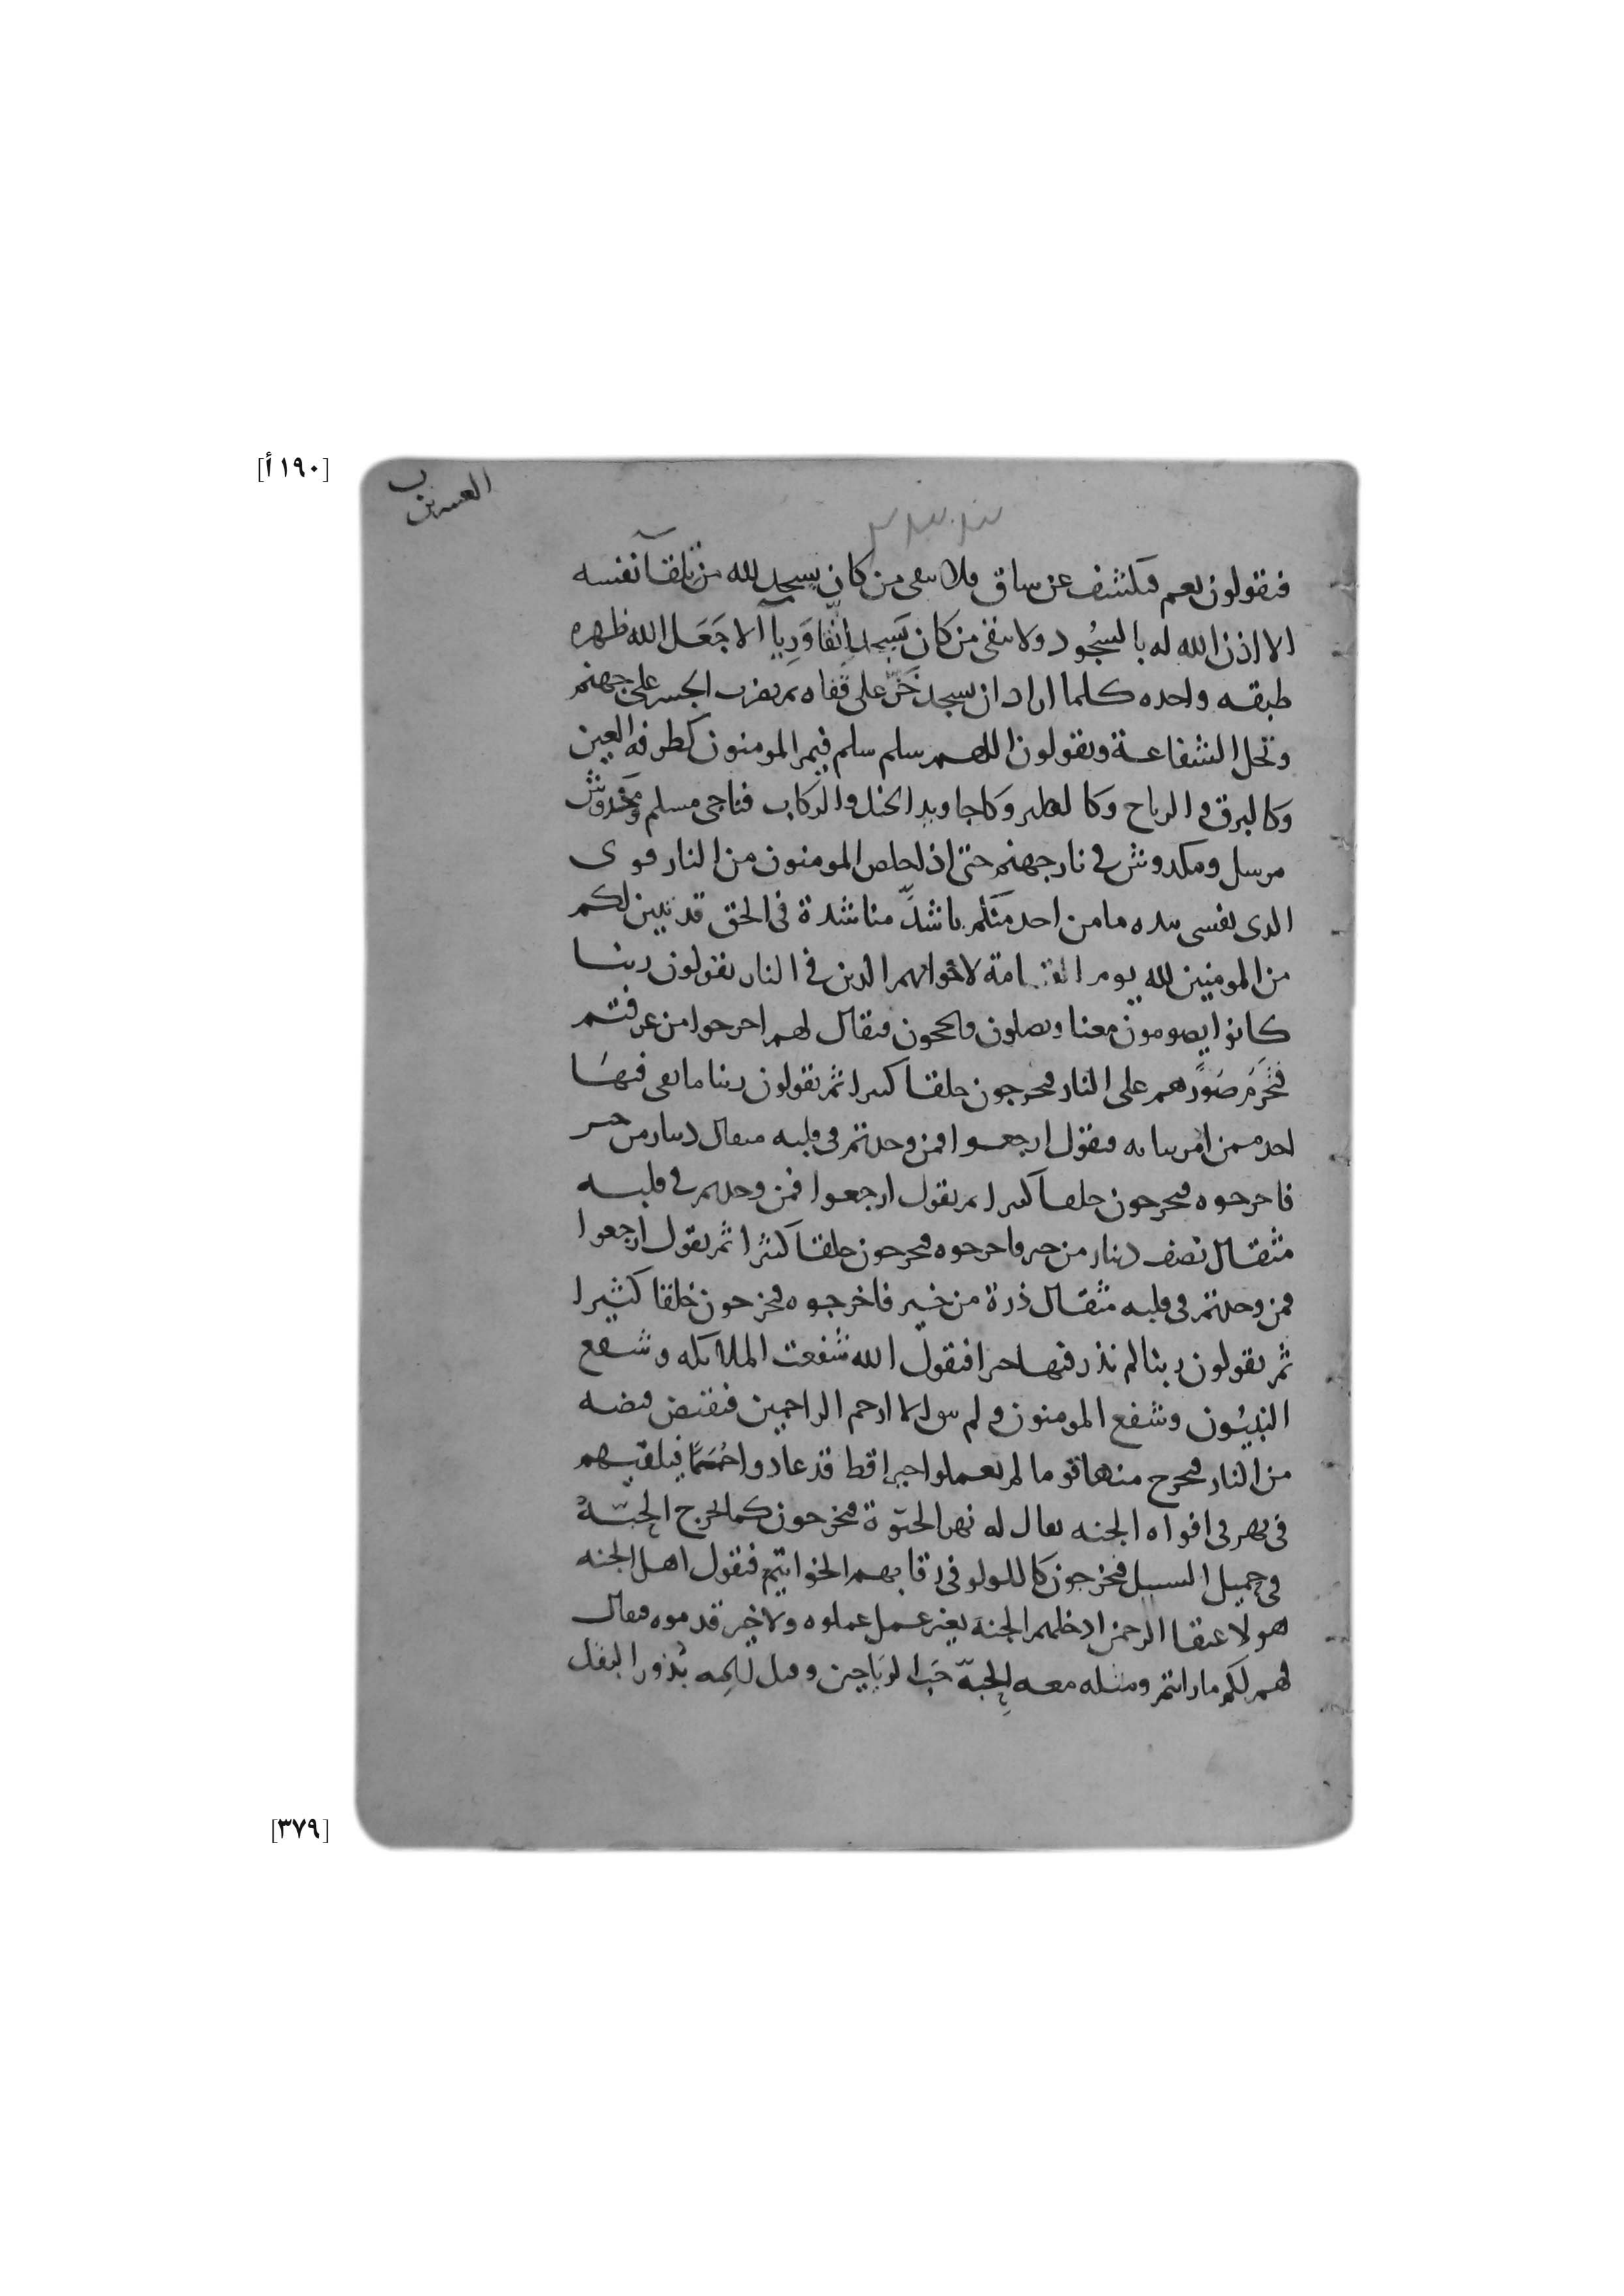 [١٩٠ أ]
العشرين
فيقولون نعم فيكشف عن ساق فلا يبقى من كان يسجد لله من تلقآ نفسه
الا اذن الله له بالسجُود ولا يبقى من كان يَسجد اتّقآ وَرِيآ الا جَعَل الله ظهره
طبقه واحده كلما اراد ان يسجد خَرّ على قفاه ثم يضرب الجسر على جهنم
وتحل الشفاعة ويقولون اللهم سلم سلم فيمر المومنون كطرفه العين
وكالبرق والرياح وكالطير وكاجاويد الخيل والركاب فناجى مسلم ومخدوش
مرسل ومكدوش فى نار جهنم حتى اذ الخلص المومنون من النار فو ى
الذى نفسى بيده ما من احد منكم باشدّ مناشدة فى الحق قد تبين لكم
من المومنين لله يوم القيامة لاخوانهم الذين فى النار يقولون ربنا
كانوا يصومون معنا ويصلون ويحجون فيقال لهم اخرجوا من عرفتم
فتحَرمَ صُوَرَهم على النار فيخرجون خلقا كثيرا ثم يقولون ربنا ما بقى فيها
احد ممن امرتنا به فيقول ارجعوا فمن وجدتم فى قلبه مثقال دينار من خير
فاخرجوه فيخرجون خلقا كثيرا ثم يقول ارجعوا فمن وجدتم فى قلبه
مثقال نصف دينار من خير فاخرجوه فيخرجون خلقا كثيرا ثم يقول ارجعوا
فمن وجدتم فى قلبه مثقال ذرة من خير فاخرجوه فيخرجون خلقا كثيرا
ثم يقولون ربنا لم نذر فيها خيرا فيقول الله شفعت الملايكه وشفع
النبيُون وشفع المومنون ولم يبق الا ارحم الراحمين فيقبض قبضه
من النار فيخرج منها قوما لم يعملوا خيرا قط قد عادوا حُمَمًا فيلقيهم
فى نهر فى افواه الجنه يقال له نهر الحيوة فيخرجون كما تخرج الحِبّة
فى حميل السيل فيخرجون كاللولو فى رقابهم الخواتيم فيقول اهل الجنه
هولا عتقا الرحمن ادخلهم الجنة بغير عمل عملوه ولا خير قدموه فيقال
لهم لكم ما رايتم ومثله معه الحِبّة حَب الرياحين وقيل الحِبه بُذور البقل
[٣٧٩]